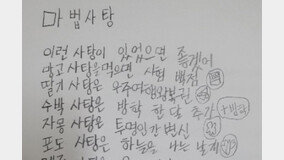 마법사탕
이런 사탕이 있었으면 좋겠어
망고 사탕을 먹으면 시험 백점
딸기 사탕은 우주여행왕복권
수박 사탕은 방학 한 달 추가 +방학
자몽 사탕은 투명인간 변신
포도 사탕은 하늘을 나는 날개